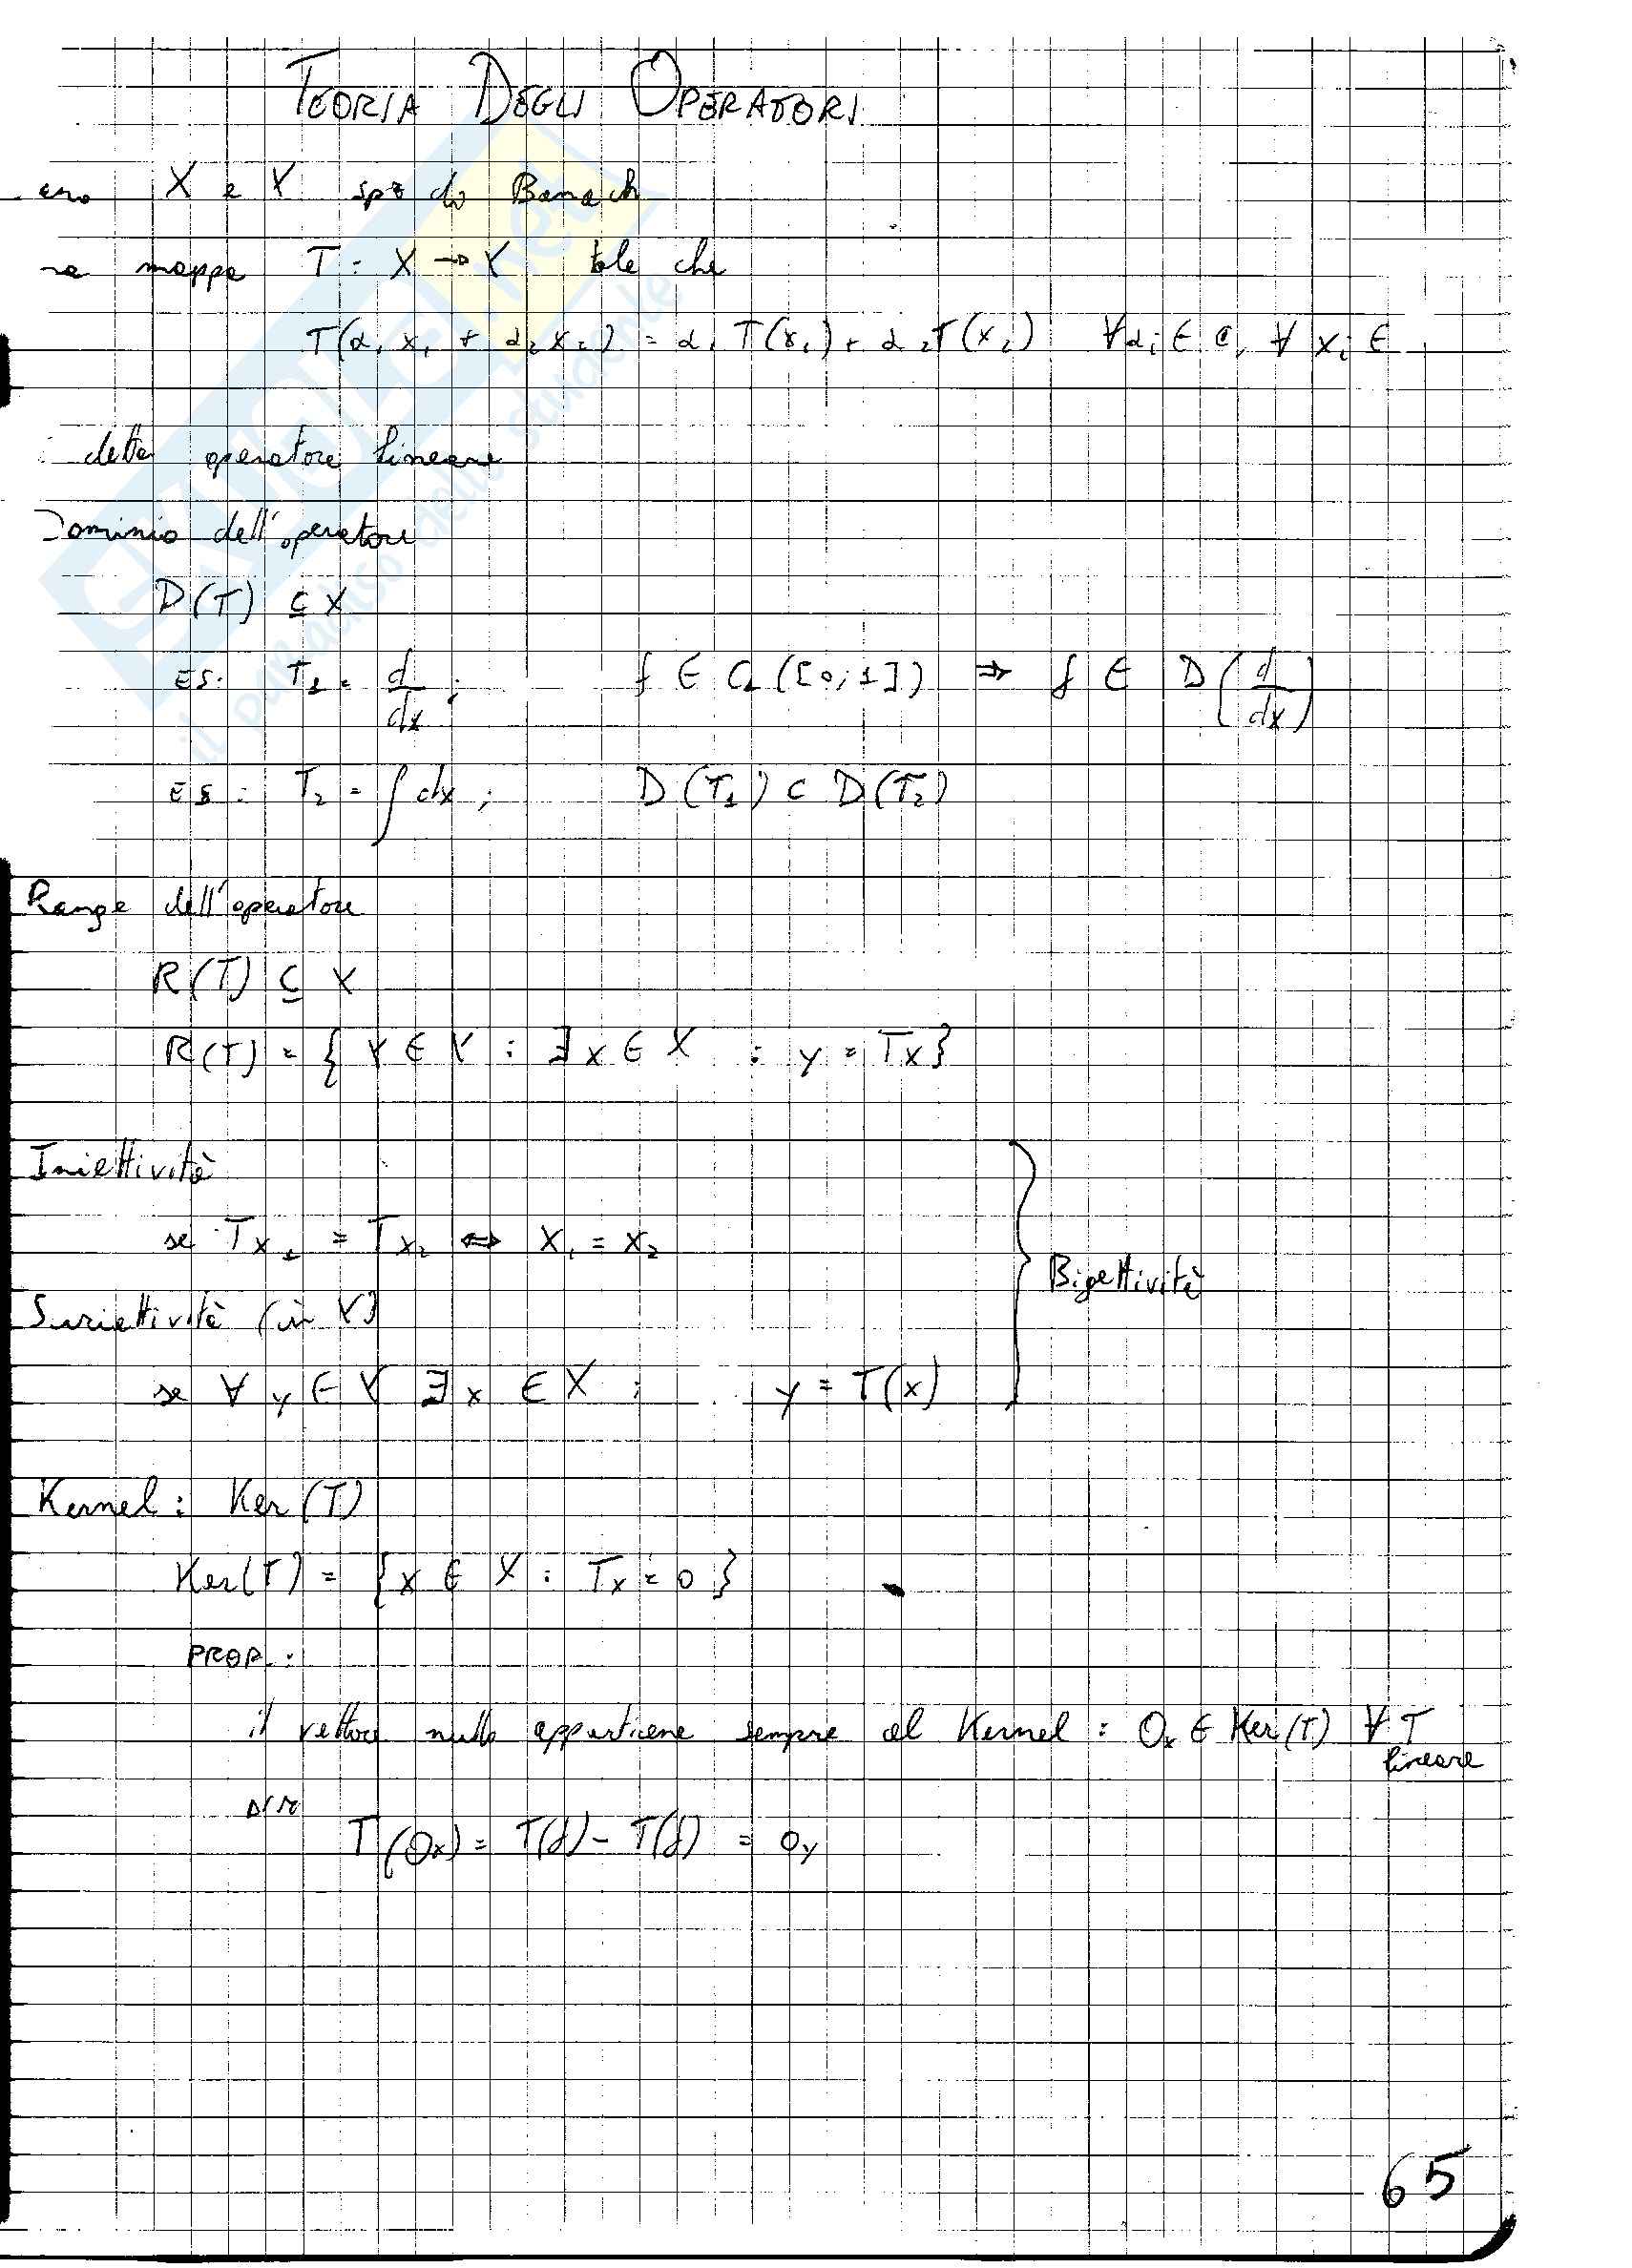 TEORIA DEGLI OPERATORI
ero X e Y spz di Banach
na mappa T: X → Y tale che
T(α₁ x₁ + α₂ x₂) = α₁ T(x₁) + α₂ T(x₂) ∀ αᵢ ∈ ℂ, ∀ xᵢ ∈
detta operatore lineare
Dominio dell'operatore
D(T) ⊆ X
ES: T₁ = d/dx ; f ∈ C₁([0;1]) ⇒ f ∈ D(d/dx)
ES: T₂ = ∫ dx ; D(T₁) ⊂ D(T₂)
Range dell'operatore
R(T) ⊆ Y
R(T) = { y ∈ Y : ∃ x ∈ X : y = Tx }
Iniettività
se Tx₁ = Tx₂ ⇔ x₁ = x₂
Bigettività
Suriettività (in Y)
se ∀ y ∈ Y ∃ x ∈ X : y = T(x)
Kernel: Ker(T)
Ker(T) = { x ∈ X : Tx = 0 }
PROP.:
il vettore nullo appartiene sempre al Kernel : 0ₓ ∈ Ker(T) ∀ T
lineare
DIM
T(0ₓ) = T(f) - T(f) = 0y
65
il paradiso dello studente